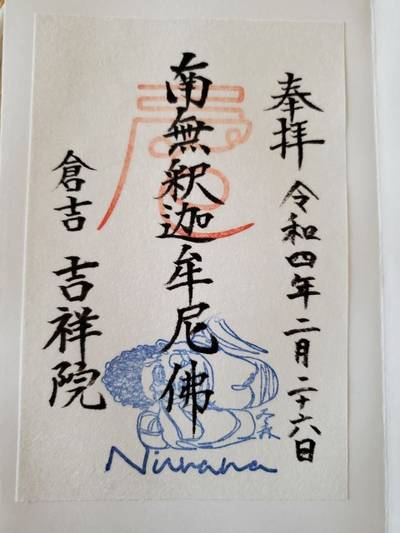 奉拝
令和四年二月二十六日
南無釈迦牟尼佛
倉吉
吉祥院
Nirvana